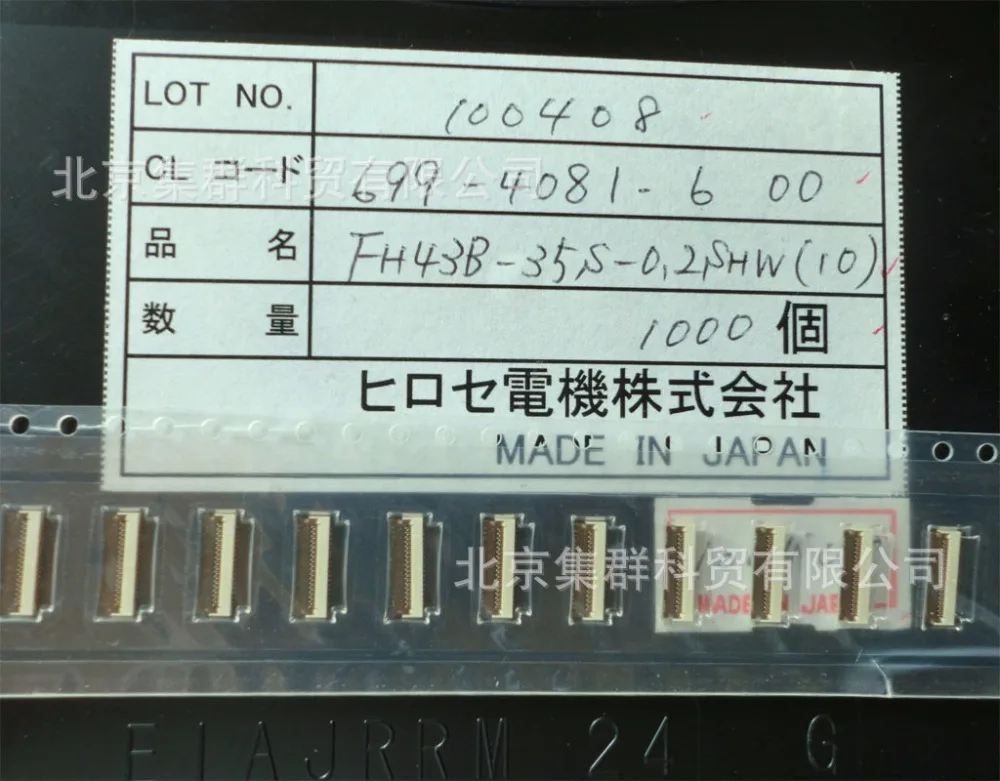 LOT NO. 100408
CL コード 699-4081-6 00
品名 FH43B-35S-0.2SHW(10)
数量 1000 個
ヒロセ電機株式会社
MADE IN JAPAN
北京集群科贸有限公司
北京集群科贸有限公司
MADE IN JAPA
EIAJRRM 24 G